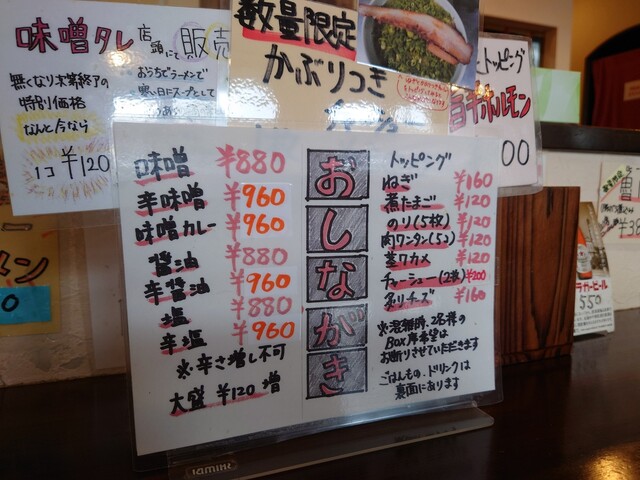 味噌タレ 店頭にて 販売
無くなり次第終了の
特別価格
なんと今なら
1コ ¥120
おうちでラーメンで
寒い日にスープとして
数量限定
かぶりつき
トッピング
旨辛ホルモン
00
おしながき
味噌 ¥880
辛味噌 ¥960
味噌カレー ¥960
醤油 ¥880
辛醤油 ¥960
塩 ¥880
辛塩 ¥960
※辛さ増し不可
大盛 ¥120増
トッピング
ねぎ ¥160
煮たまご ¥120
のり(5枚) ¥120
肉ワンタン(5コ) ¥120
茎ワカメ ¥120
チャーシュー(2枚) ¥200
炙りチーズ ¥160
※混雑時、2名様の
Box席希望は
お断りさせていただきます
ごはんもの、ドリンクは
裏面にあります
メン
0
ラガービール
550